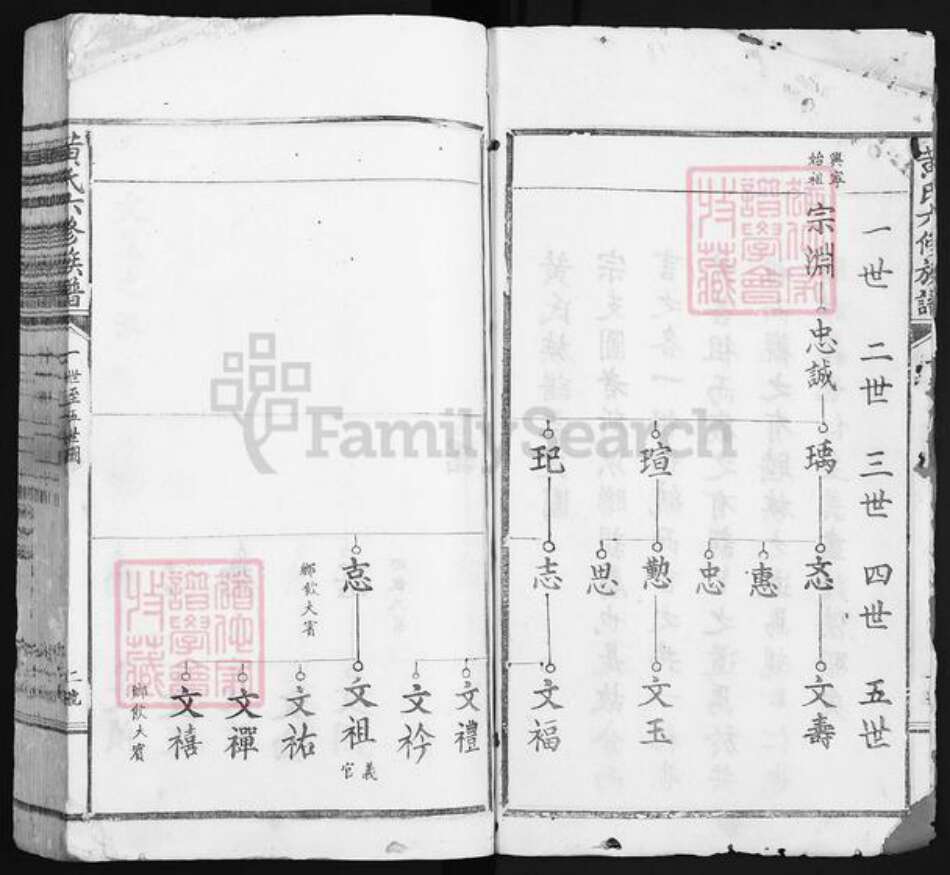 黃氏六修族譜
一世
二世
三世
四世
五世
興寧
始祖
宗淵
忠誠
瑀
瑄
玘
忞
惠
忠
懃
思
志
文壽
文玉
文福
忘
鄉飲大賓
文禮
文衿
文祖
義
官
文祐
文禪
文禧
鄉飲大賓
黃氏六修族譜
一世至五世圖
二號
FamilySearch
譜學會
收藏
譜學會
收藏